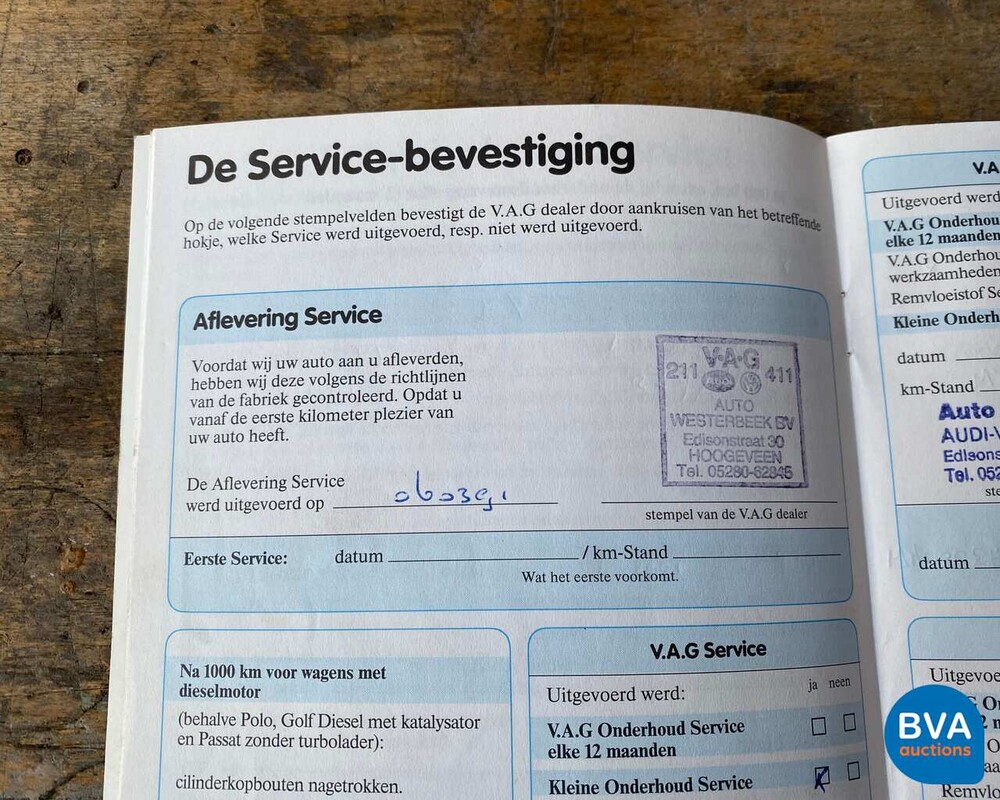 De Service-bevestiging
Op de volgende stempelvelden bevestigt de V.A.G dealer door aankruisen van het betreffende
hokje, welke Service werd uitgevoerd, resp. niet werd uitgevoerd.
Aflevering Service
Voordat wij uw auto aan u afleverden,
hebben wij deze volgens de richtlijnen
van de fabriek gecontroleerd. Opdat u
vanaf de eerste kilometer plezier van
uw auto heeft.
De Aflevering Service
werd uitgevoerd op
V·A·G
211 411
AUTO
WESTERBEEK BV
Edisonstraat 30
HOOGEVEEN
Tel. 05280-62845
stempel van de V.A.G dealer
Eerste Service: datum / km-Stand
Wat het eerste voorkomt.
Na 1000 km voor wagens met
dieselmotor
(behalve Polo, Golf Diesel met katalysator
en Passat zonder turbolader):
cilinderkopbouten nagetrokken.
V.A.G Service
Uitgevoerd werd: ja neen
V.A.G Onderhoud Service
elke 12 maanden
Kleine Onderhoud Service
V.A
Uitgevoerd werd
V.A.G Onderhou
elke 12 maanden
V.A.G Onderhou
werkzaamheden
Remvloeistof Se
Kleine Onderh
datum
km-Stand
Auto
AUDI-V
Edisons
Tel. 052
ste
datum
Uitgevoe
Remvlo
BVA
auctions